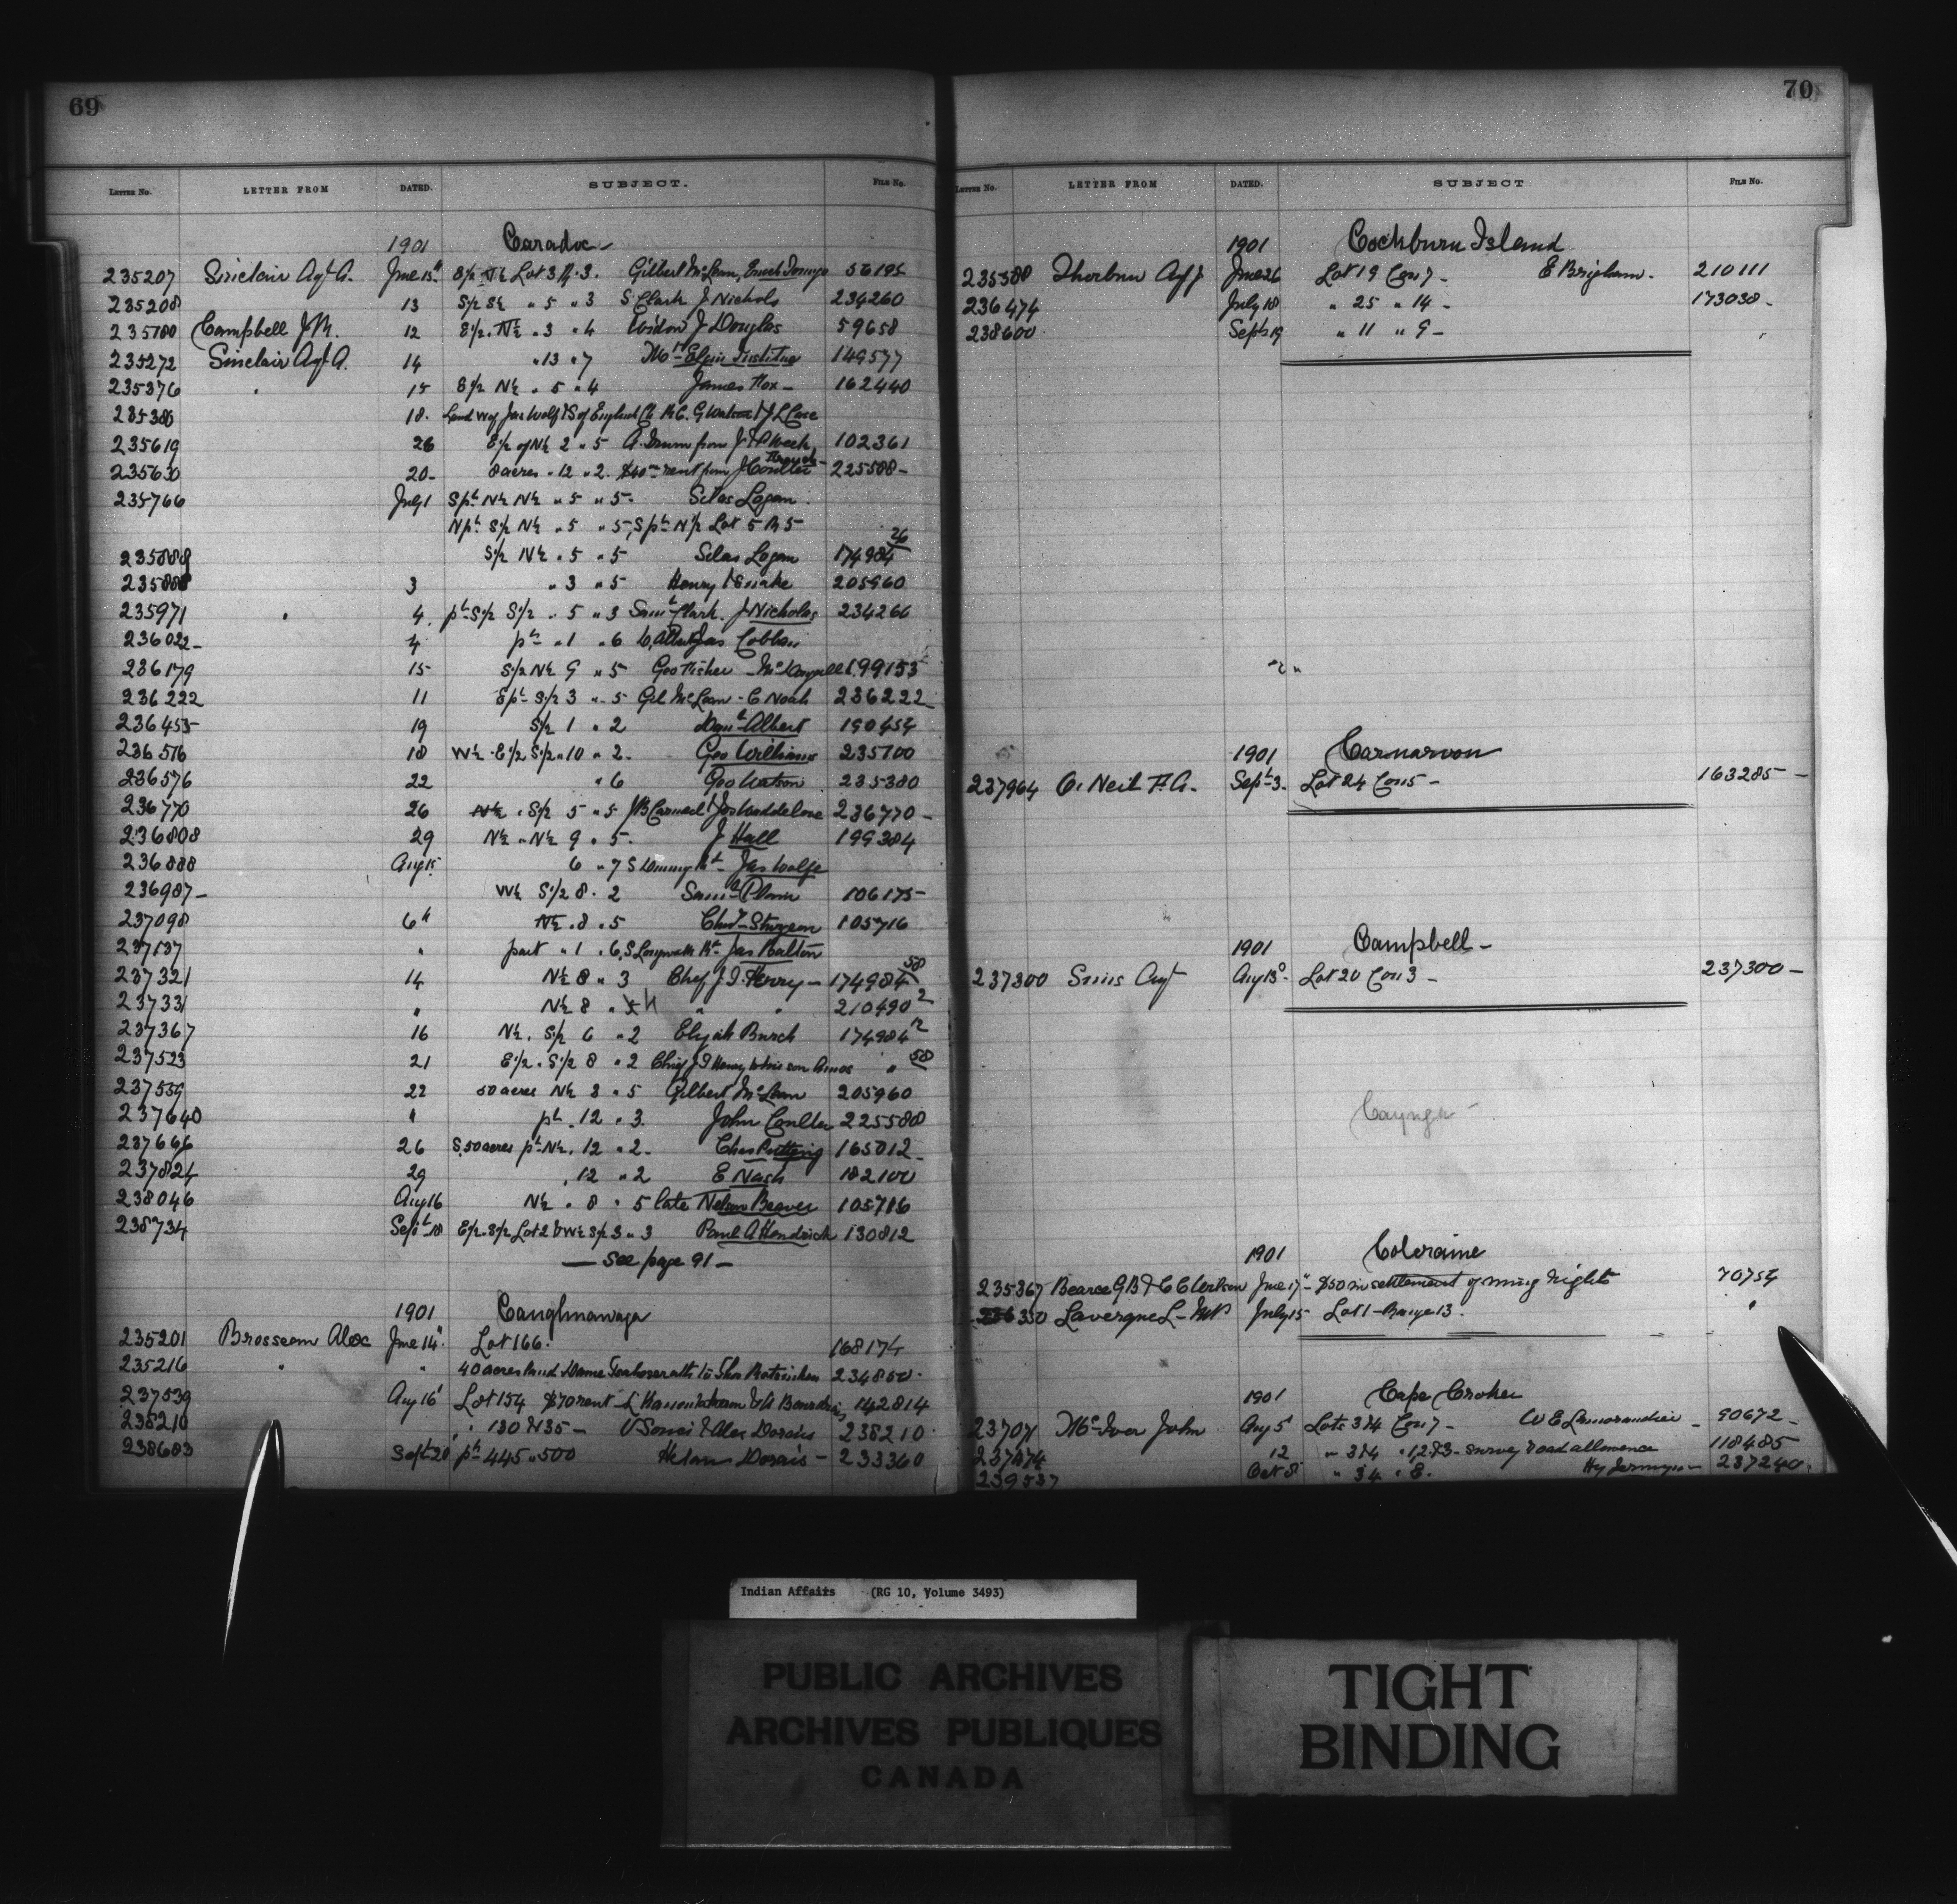 69
LETTER No. LETTER FROM DATED. SUBJECT. FILE No.
1901 Caradoc
235207 Sinclair Agt A. June 13 E½ N½ Lot 3 R. 3. Gilbert McLean, Enoch 56195
235208 13 S½ S½ " 5 " 3 S Clark J Nichols 234260
235180 Campbell J.M. 12 E½. N½ " 3 " 4 Widow J Douglas 59658
235272 Sinclair Agt A. 14 " 13 " 7 Mt Elgin Institue 149577
235376 " 15 E½ N½ " 5 " 4 James Fox - 162440
235380 18. Land of Jas Wolf & J L Case
235619 26 E½ of N½ 2 " 5 from 102361
235630 20- 8 acres " 12 " 2. $40 rent from J Coulter 225588-
235766 July 1 Spt N½ N½ " 5 " 5- Silas Logan
Npt S½ N½ " 5 " 5, Spt N½ Lot 5 R 5
S½ N½ " 5 " 5 Silas Logan 174984 26
3 " 3 " 5 Henry Snake 205960
235971 " 4. pt S½ S½ " 5 " 3 Saml Clark. J Nicholas 234266
236022- 4 pt " 1 " 6
236179 15 S½ N½ 9 " 5 Geo Fisher - McDougall 199153
236222 11 Ept S½ 3 " 5 Gil McLean - E Noah 236222
236455 19 S½ 1 " 2 Danl Albert 190454
236516 18 W½ - E½ S½ " 10 " 2. Geo Williams 235100
236576 22 " 6 Geo Watson 235380
236770 26 N½ . S½ 5 " 5 236770-
236808 29 N½ " N½ 9 " 5. J Hall 199384
236888 Aug 15 6 " 7 Jas Wolfe
236987- W½ S½ 8. 2 Saml Plain 106175-
237098 6th N½ . 8 . 5 Chas Sturgeon 105716
237137 " part " 1 . 6, Jas Halton
237321 14 N½ 8 " 3 Chief J. I. Henry - 174984 58
237331 " N½ 8 " 4 " " 210490 2
237367 16 N½. S½ 6 " 2 Elijah Burch 174984 12
237523 21 E½. S½ 8 " 2 Chief J I Henry to his son Amos " 58
237559 22 50 acres N½ 3 " 5 Gilbert McLean 205960
237640 " pt. 12 " 3. John Coulter 225588
237666 26 S. 50 acres pt N½. 12 " 2- 165012-
237824 29 . 12 " 2 E Nash 182100
238046 Aug 16 N½ . 8 " 5 late Nelson Beaver 105786
238734 Sept 18 E½. S½ Lot 2 & W½ S½ 3 " 3 Paul A Hendrick 130812
— See page 91 —
1901 Caughnawaga
235201 Brosseau Alex June 14 Lot 166. 168174
235216 " " 40 acres land Dame to 234850.
237539 Aug 16 Lot 154 $70 rent 142814
238210 " . 130 & 135 - & Alex Dorais 238210
238683 Sept 20 pt 445 " 500 Dorais - 233360
70
LETTER No. LETTER FROM DATED. SUBJECT FILE No.
1901 Cockburn Island
235588 Thorburn Agt J June 26 Lot 19 Con 7 - E Brigham. 210111
236474 July 18 " 25 " 14 - 173038-
238600 Sept 19 " 11 " 9 -
1901 Carnarvon
237964 O'Neil F. A. Sept 3. Lot 24 Con 5 - 163285 -
1901 Campbell -
237300 Sims Agt Aug 13 Lot 20 Con 3 - 237300 -
Cayuga -
1901 Coleraine
235367 Bearce G B & C Clarkson June 17 - $50 in settlement of mining rights 70754
236350 Lavergne L - M P July 15 Lot 1 - Range 13. "
1901 Cape Croker
23707 McIver John Aug 5 Lots 3 & 4 Con 7 - W E Lamorandier - 90672-
237474 12 " 3 & 4 " 12 & 3 - survey road allowance 118485
239537 Oct 8 " 34 " 8. Hy 237240.
Indian Affairs (RG 10, Volume 3493)
PUBLIC ARCHIVES
ARCHIVES PUBLIQUES
CANADA
TIGHT
BINDING